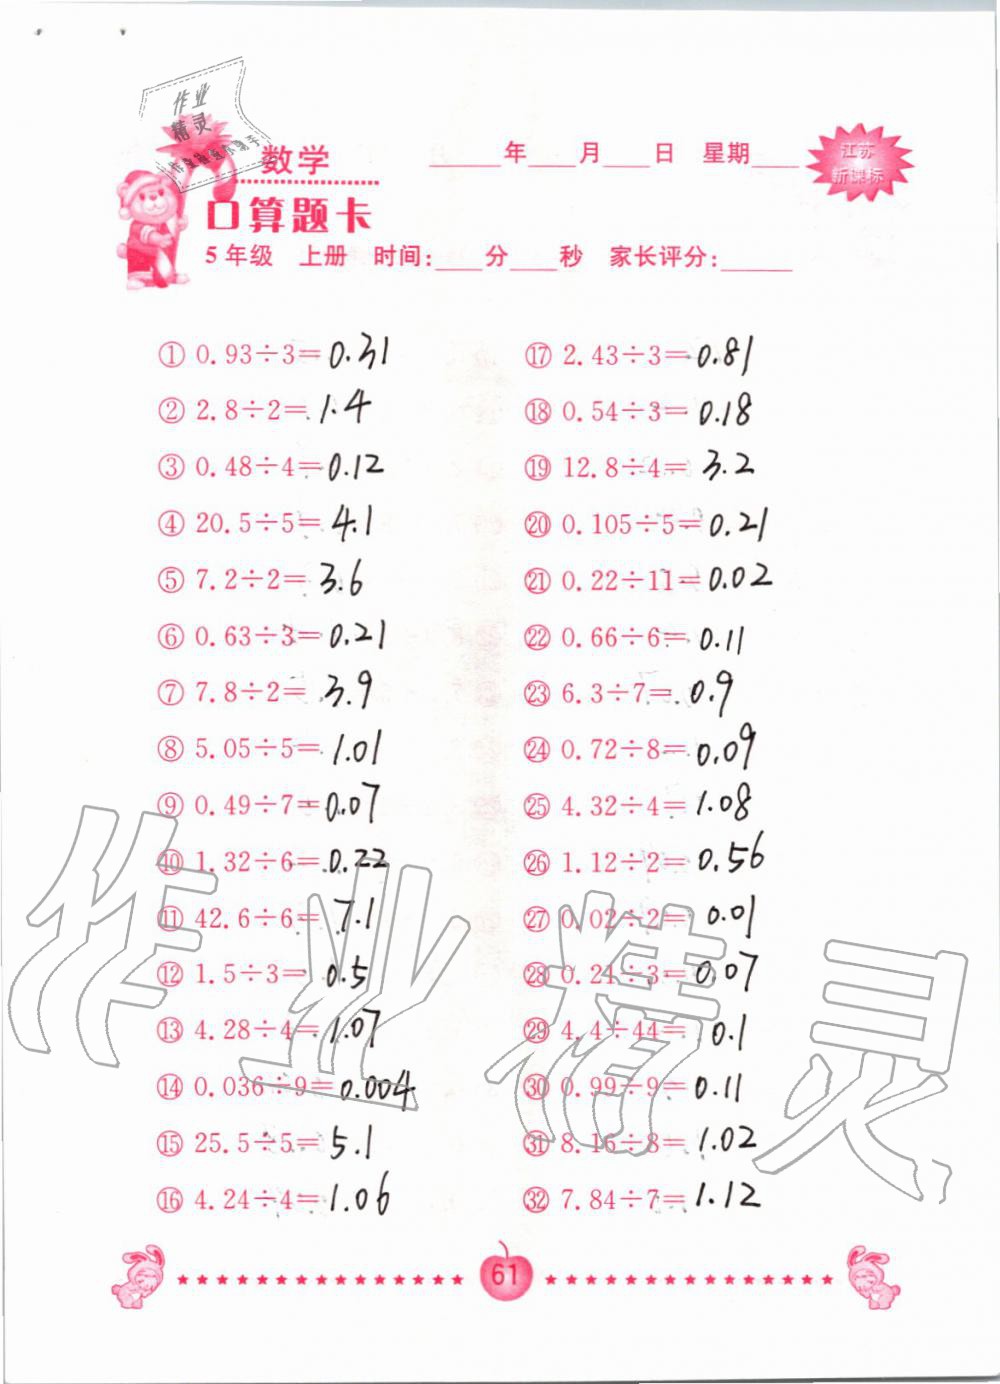 作业
精灵
作业快速小助手
数学
____年____月____日 星期____
江苏
新课标
口算题卡
5年级 上册 时间:____分____秒 家长评分:______
① 0.93÷3=0.31
② 2.8÷2=1.4
③ 0.48÷4=0.12
④ 20.5÷5=4.1
⑤ 7.2÷2=3.6
⑥ 0.63÷3=0.21
⑦ 7.8÷2=3.9
⑧ 5.05÷5=1.01
⑨ 0.49÷7=0.07
⑩ 1.32÷6=0.22
⑪ 42.6÷6=7.1
⑫ 1.5÷3=0.5
⑬ 4.28÷4=1.07
⑭ 0.036÷9=0.004
⑮ 25.5÷5=5.1
⑯ 4.24÷4=1.06
⑰ 2.43÷3=0.81
⑱ 0.54÷3=0.18
⑲ 12.8÷4=3.2
⑳ 0.105÷5=0.21
㉑ 0.22÷11=0.02
㉒ 0.66÷6=0.11
㉓ 6.3÷7=0.9
㉔ 0.72÷8=0.09
㉕ 4.32÷4=1.08
㉖ 1.12÷2=0.56
㉗ 0.02÷2=0.01
㉘ 0.21÷3=0.07
㉙ 4.4÷44=0.1
㉚ 0.99÷9=0.11
㉛ 8.16÷8=1.02
㉜ 7.84÷7=1.12
作业精灵
61